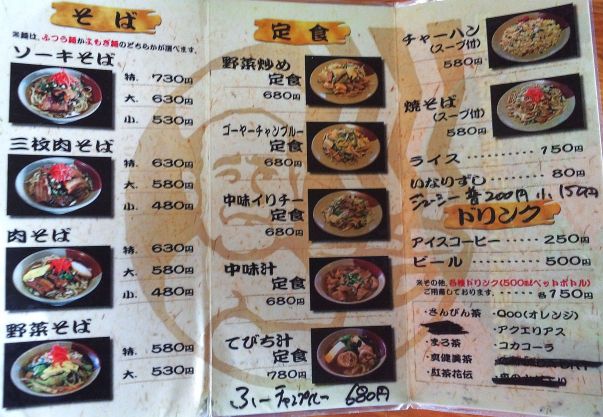 そば
※麺は、ふつう麺かよもぎ麺のどちらかが選べます。
ソーキそば
特. 730円
大. 630円
小. 530円
三枚肉そば
特. 630円
大. 580円
小. 480円
肉そば
特. 630円
大. 580円
小. 480円
野菜そば
特. 580円
大. 530円
定食
野菜炒め
定食
680円
ゴーヤーチャンプルー
定食
680円
中味イリチー
定食
680円
中味汁
定食
680円
てびち汁
定食
780円
フーチャンプルー 680円
チャーハン
(スープ付)
580円
焼そば
(スープ付)
580円
ライス ‥‥‥‥ 150円
いなりずし ‥‥‥ 80円
ジューシー 普200円 小150円
ドリンク
アイスコーヒー ‥‥ 250円
ビール ‥‥‥‥ 500円
※その他、各種ドリンク(500mlペットボトル)
ご用意しております。‥‥‥‥各150円
・さんぴん茶
・まろ茶
・爽健美茶
・紅茶花伝
・Qoo(オレンジ)
・アクエリアス
・コカコーラ